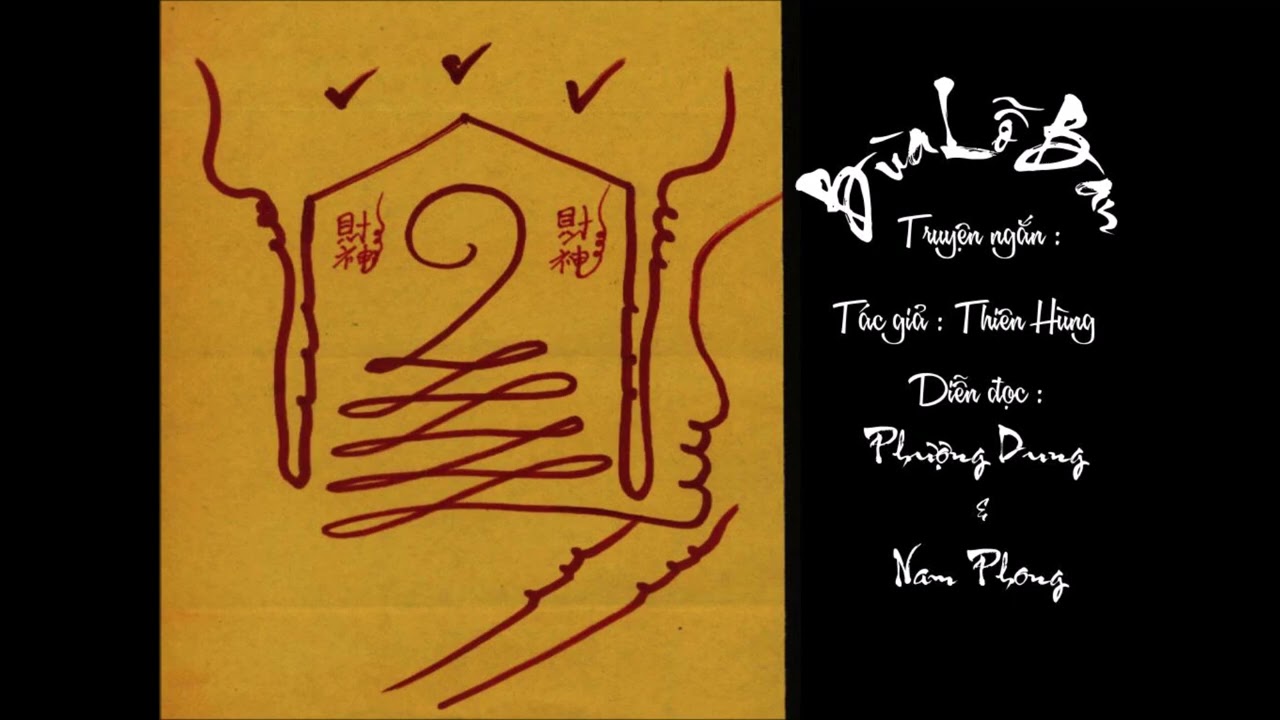 財神
財神
Bùa Lỗ Ban
Truyện ngắn :
Tác giả : Thiên Hùng
Diễn đọc :
Phượng Dung
&
Nam Phong